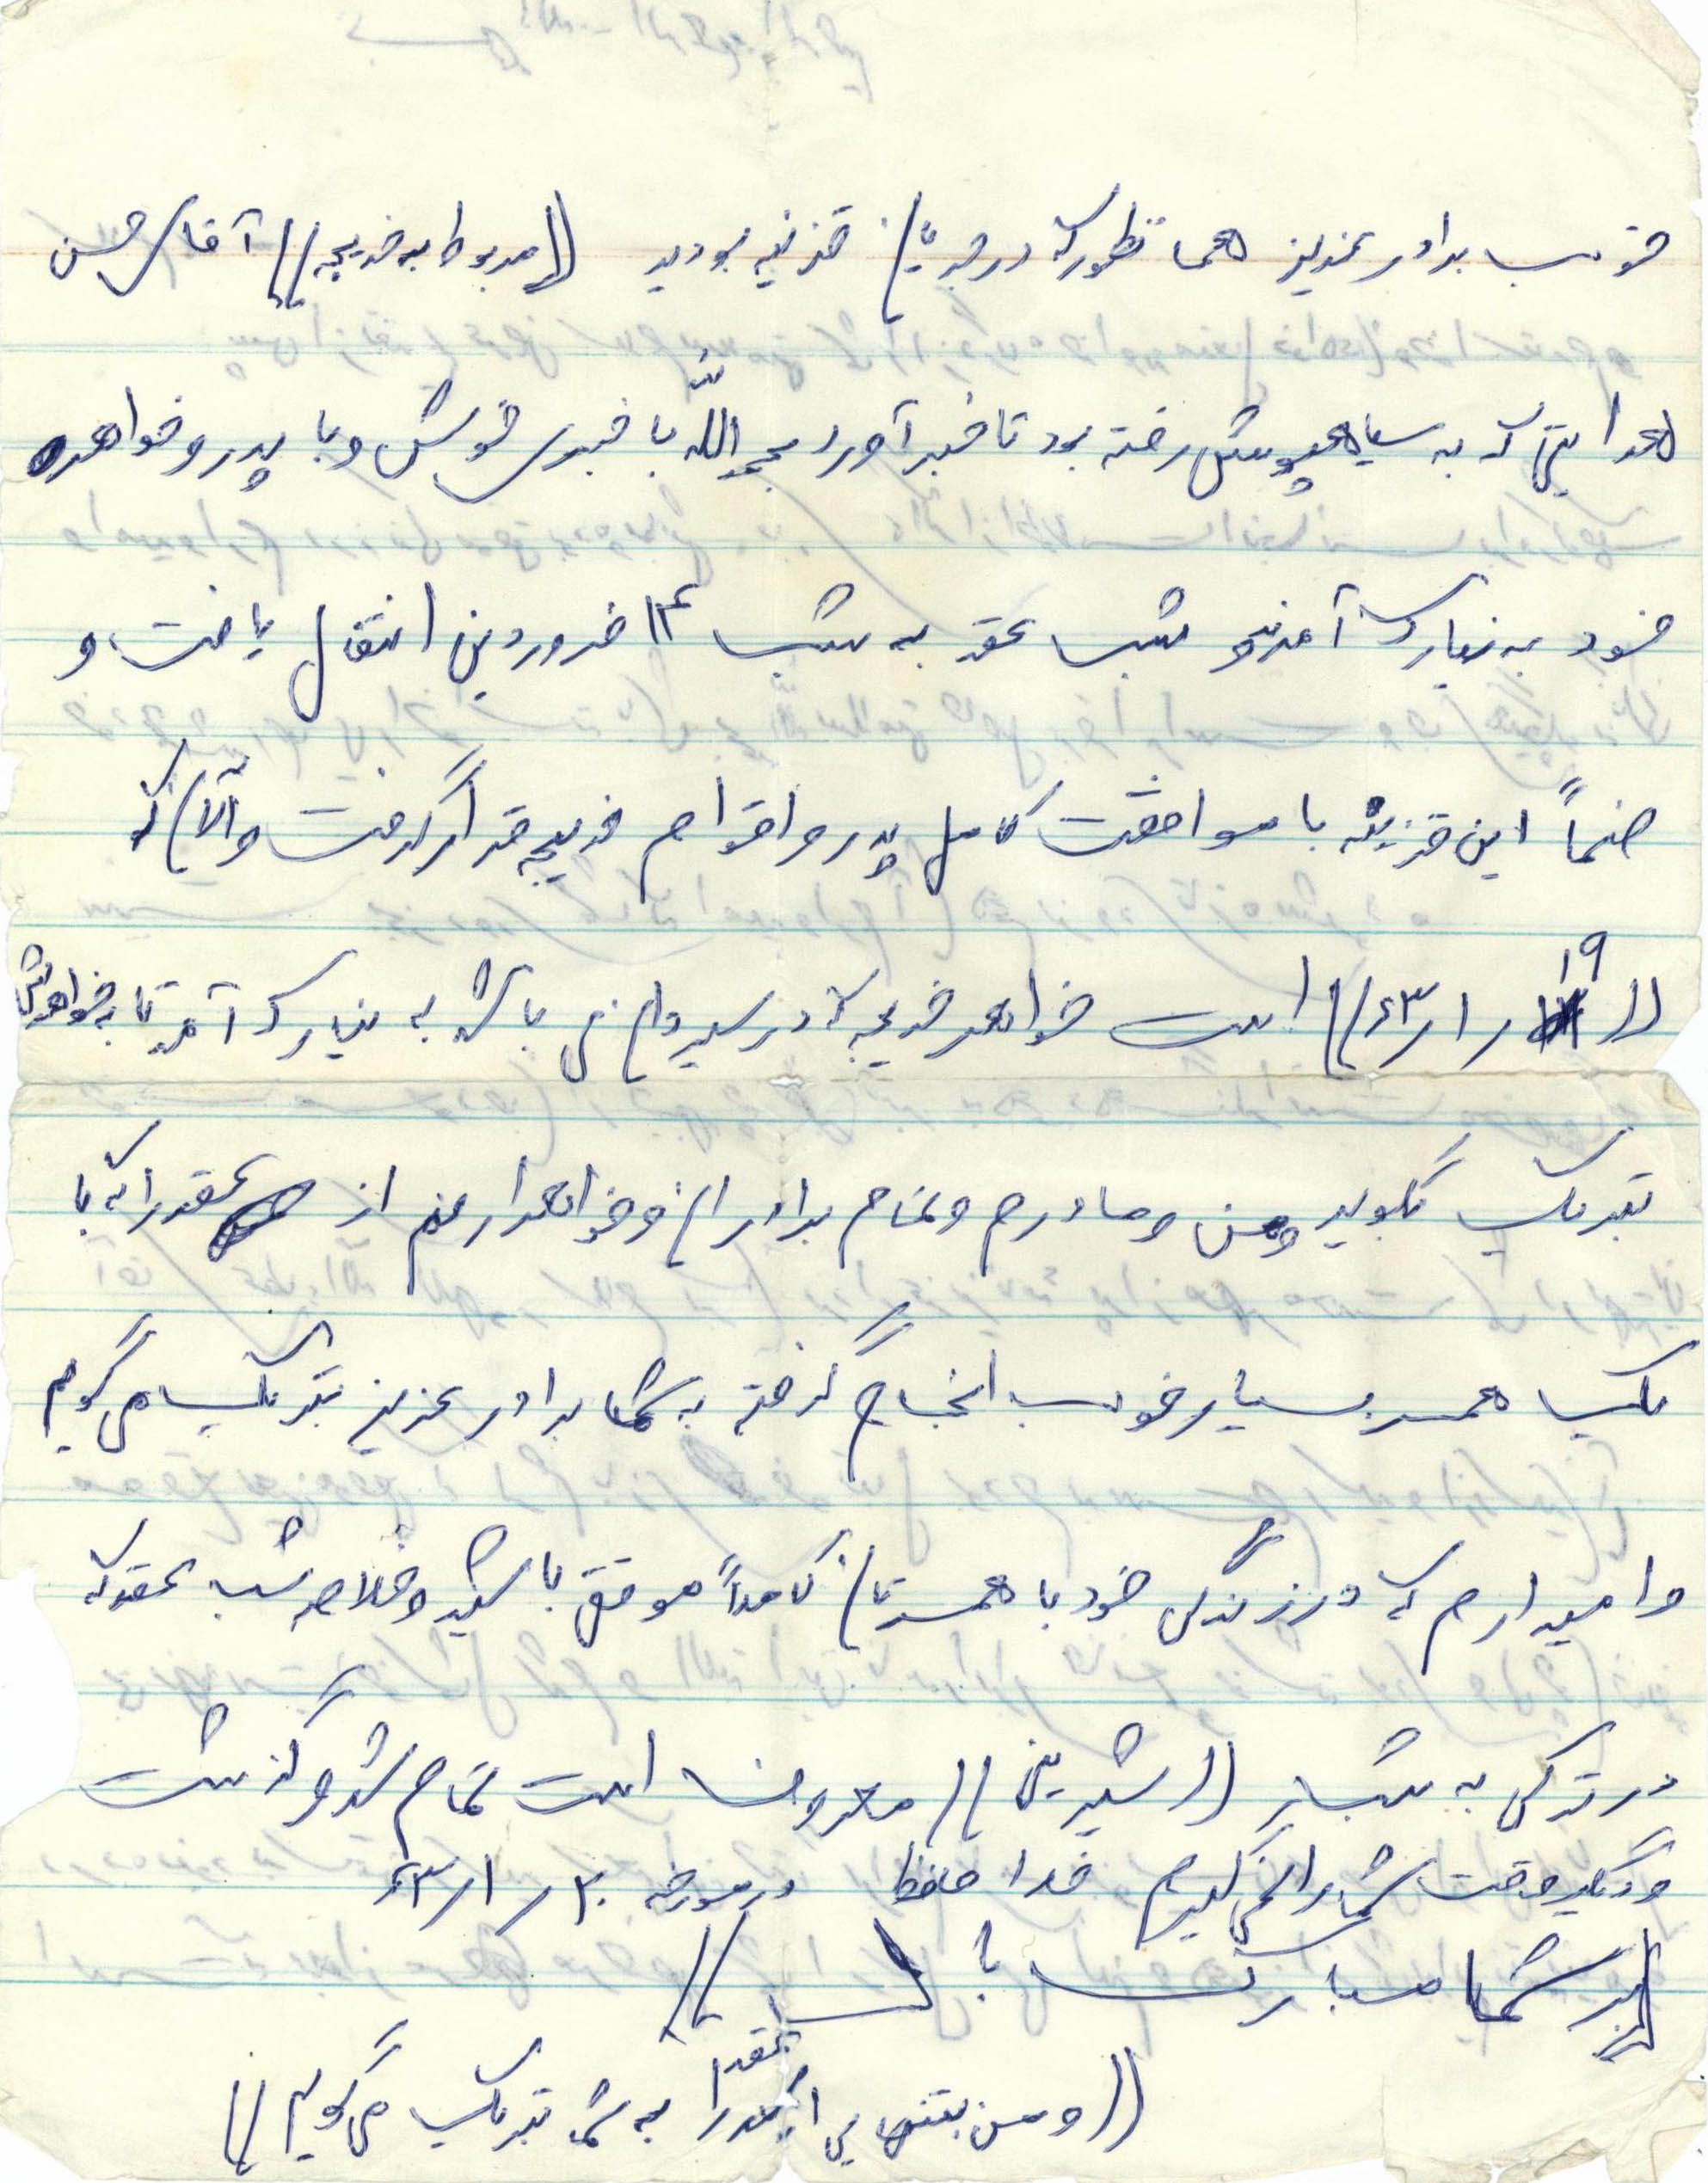 خوب برادر عزیز همانطور که در جریان قضیه بودید ((مربوط به خدیجه)) آقای حسن
هدایتی که به سیاهپوش رفته بود تا خبر آورد بحمدالله با خبری خوش و با پدر و خواهر
خود به نیارک آمدند و شب عقد به شب ۱۲ فروردین انتقال یافت و
ضمناً این قضیه با موافقت کامل پدر و اقوام خدیجه قرار گرفت و الآن که
((۱۹ / ۱ / ۶۳)) است خواهر خدیجه که در می باشد به نیارک آمد تا به خواهرش
تبریک بگوید و من و مادرم و تمام برادران و خواهرانم از عقد را که با
یک همسر بسیار خوب انجام گرفته به شما برادر عزیز تبریک می گویم
و امیدوارم که در زندگی خود با همسرتان کاملاً موفق باشید و خلاصه شب عقد که
در ترکی به شب ((شیرینی)) معروف است تمام شد و گذشت
و دیگر وقت شما را نمی گیرم خدا حافظ در مورخه ۲۰ / ۱ / ۶۳
((بر شما مبارک باد))
((و من بتنهایی این عقد را به شما تبریک می گویم))